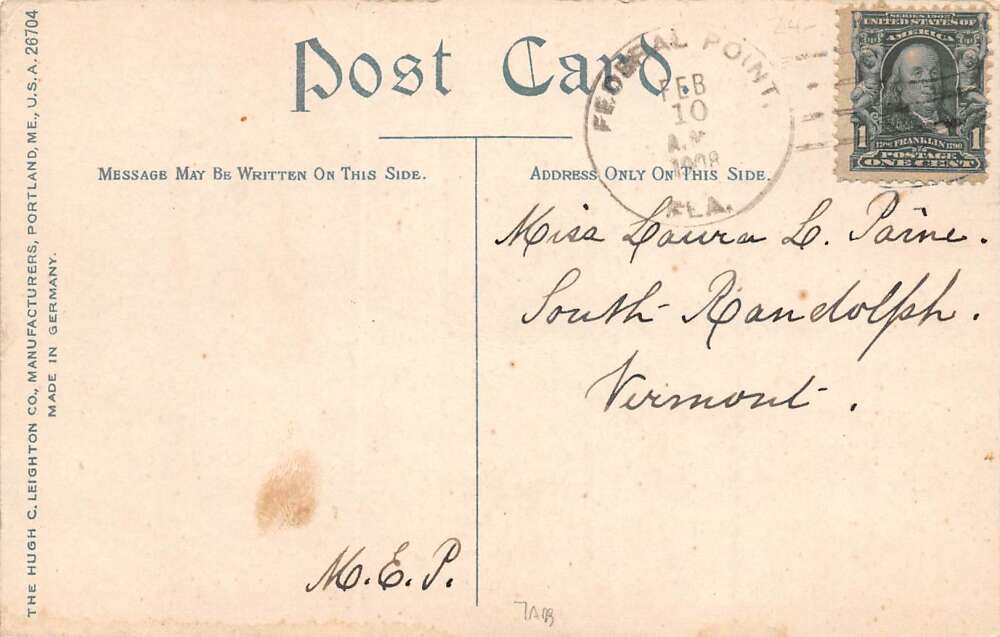 THE HUGH C. LEIGHTON CO., MANUFACTURERS, PORTLAND, ME., U.S.A. 26704
MADE IN GERMANY.
Post Card.
MESSAGE MAY BE WRITTEN ON THIS SIDE.
M.E.P.
FEDERAL POINT.
FEB
10
A.M.
1908
FLA.
SERIES 1902
UNITED STATES OF
AMERICA
1 FRANKLIN 1
1706 1790
POSTAGE
ONE CENT
ADDRESS ONLY ON THIS SIDE.
Miss Laura L. Paine.
South Randolph.
Vermont.